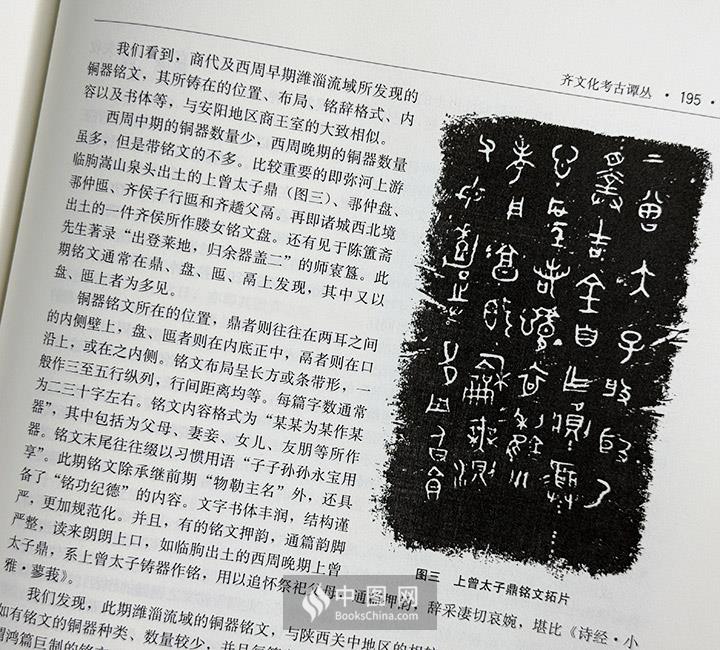 齐文化考古谭丛 · 195 ·
我们看到，商代及西周早期潍淄流域所发现的
铜器铭文，其所铸在的位置、布局、铭辞格式、内
容以及书体等，与安阳地区商王室的大致相似。
西周中期的铜器数量少，西周晚期的铜器数量
虽多，但是带铭文的不多。比较重要的即弥河上游
临朐嵩山泉头出土的上曾太子鼎（图三）、鄩仲盘、
鄩仲匜、齐侯子行匜和齐趫父鬲。再即诸城西北境
出土的一件齐侯所作媵女铭文盘。还有见于陈簠斋
先生著录“出登莱地，归余器盖二”的师寰簋。此
期铭文通常在鼎、盘、匜、鬲上发现，其中又以
盘、匜上者为多见。
铜器铭文所在的位置，鼎者则往往在两耳之间
的内侧壁上，盘、匜者则在内底正中，鬲者则在口
沿上，或在之内侧。铭文布局呈长方或条带形，一
般作三至五行纵列，行间距离均等。每篇字数通常
为二三十字左右。铭文内容格式为“某某为某作某
器”，其中包括为父母、妻妾、女儿、友朋等所作
器。铭文末尾往往缀以习惯用语“子子孙孙永宝用
享”。此期铭文除承继前期“物勒主名”外，还具
备了“铭功纪德”的内容。文字书体丰润，结构谨
严，更加规范化。并且，有的铭文押韵，通篇韵脚
严整，读来朗朗上口，如临朐出土的西周晚期上曾
太子鼎，系上曾太子铸器作铭，用以追怀祭祀父母，通篇押韵，辞采凄切哀婉，堪比《诗经·小
雅·蓼莪》。
我们发现，此期潍淄流域的铜器铭文，与陕西关中地区的相
如有铭文的铜器种类、数量较少，并且每
图三 上曾太子鼎铭文拓片
中图网
BooksChina.com